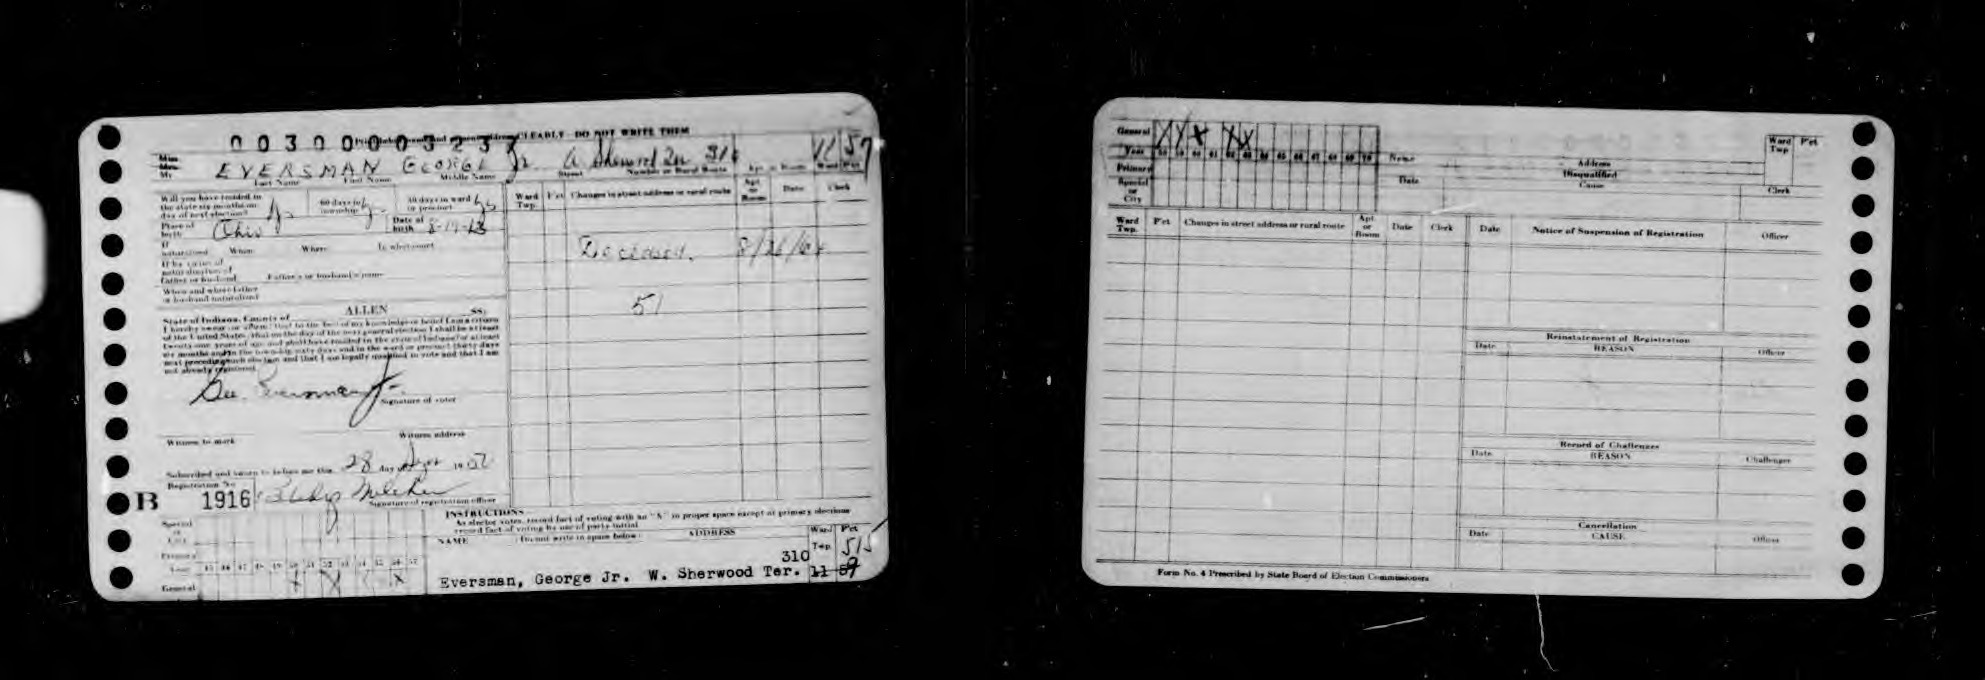 0 0 3 0 0 0 0 3 2 3
CLEARLY - DO NOT WRITE THEM
Miss
Mrs.
Mr. EVERSMAN GEORGE Jr. W. Sherwood Ter 310 11 57
Last Name First Name Middle Name Street Number or Rural Route Apt. or Room Ward Pct.
Will you have resided in the state six months on day of next election?
60 days in township
30 days in ward or precinct
Place of birth Ohio Date of birth
If naturalized When Where In what court
If by virtue of naturalization of Father or husband Father's or husband's name
When and where father or husband naturalized
State of Indiana, County of ALLEN SS:
I hereby swear or affirm that to the best of my knowledge or belief I am a citizen
of the United States, that on the day of the next general election I shall be at least
twenty-one years of age and shall have resided in the state of Indiana for at least
six months and in the township sixty days and in the ward or precinct thirty days
next preceding such election and that I am legally qualified to vote and that I am
not already registered.
Geo. Eversman Jr
Signature of voter
Witness to mark Witness address
Subscribed and sworn to before me this 28 day of 19
Registration No.
B 1916 Gladys
Signature of registration officer
Ward Twp. Pct. Changes in street address or rural route Apt. or Room Date Clerk
Deceased. 8/26/64
51
INSTRUCTIONS
As elector votes, record fact of voting with an "X" in proper space except at primary elections
record fact of voting by use of party initial
NAME (Do not write in space below) ADDRESS Ward Twp. Pct.
Special or City
Primary
Year 45 46 47 48 49 50 51 52 53 54 55 56 57
General X X X
310 51
Eversman, George Jr. W. Sherwood Ter. 11 59
General X X X X X
Year 58 59 60 61 62 63 64 65 66 67 68 69 70
Primary
Special or City
Name Address Ward Twp Pct.
Date Disqualified Cause Clerk
Ward Twp. Pct. Changes in street address or rural route Apt. or Room Date Clerk
Date Notice of Suspension of Registration Officer
Reinstatement of Registration
Date REASON Officer
Record of Challenges
Date REASON Challenger
Cancellation
Date CAUSE Officer
Form No. 4 Prescribed by State Board of Election Commissioners